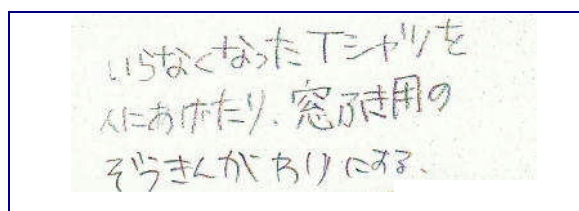 いらなくなったTシャツを
人にあげたり、窓ふき用の
ぞうきんがわりにする、